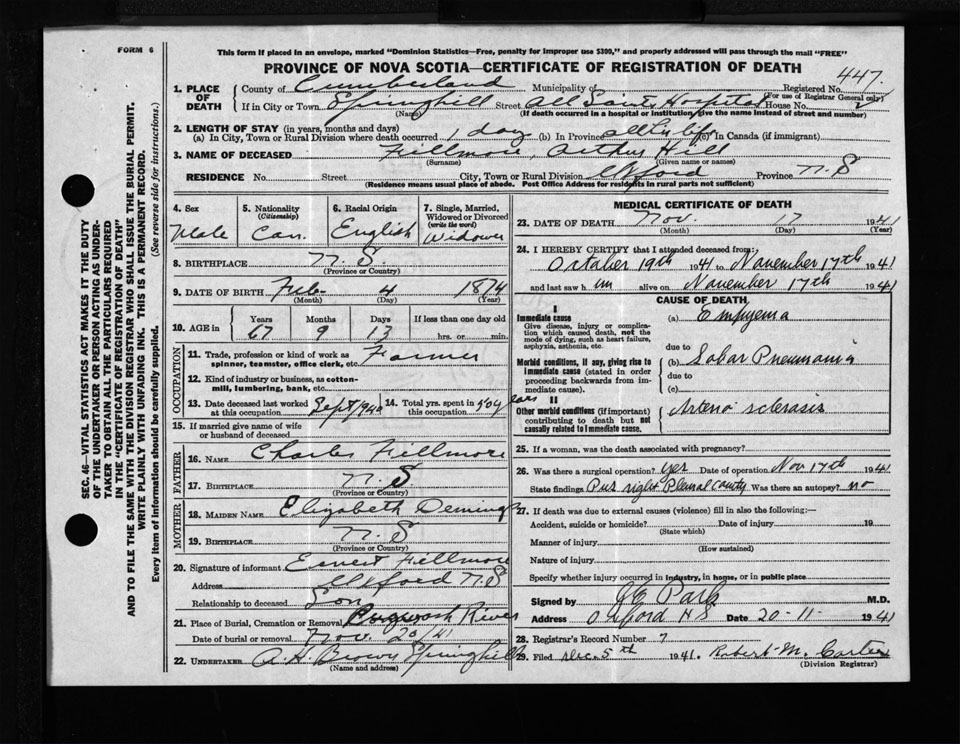 FORM 6
This form if placed in an envelope, marked "Dominion Statistics—Free, penalty for improper use $300," and properly addressed will pass through the mail "FREE"
PROVINCE OF NOVA SCOTIA—CERTIFICATE OF REGISTRATION OF DEATH
447.
1. PLACE OF DEATH
County of Cumberland Municipality of Registered No.
(For use of Registrar General only)
If in City or Town Springhill Street All Saints Hospital House No.
(Name) (If death occurred in a hospital or institution, give the name instead of street and number)
2. LENGTH OF STAY (in years, months and days)
(a) In City, Town or Rural Division where death occurred 1 day (b) In Province all his life (c) In Canada (if immigrant)
3. NAME OF DECEASED Fillmore, Arthur Hill
(Surname) (Given name or names)
RESIDENCE No. Street City, Town or Rural Division Oxford Province N.S
(Residence means usual place of abode. Post Office Address for residents in rural parts not sufficient)
4. Sex Male
5. Nationality (Citizenship) Can.
6. Racial Origin English
7. Single, Married, Widowed or Divorced (write the word) Widower
8. BIRTHPLACE N.S.
(Province or Country)
9. DATE OF BIRTH Feb. 4 1874
(Month) (Day) (Year)
10. AGE in Years Months Days If less than one day old
67 9 13 hrs. or min.
OCCUPATION
11. Trade, profession or kind of work as spinner, teamster, office clerk, etc. Farmer
12. Kind of industry or business, as cotton-mill, lumbering, bank, etc.
13. Date deceased last worked at this occupation Sept 1940
14. Total yrs. spent in this occupation 50 years
15. If married give name of wife or husband of deceased
FATHER
16. NAME Charles Fillmore
17. BIRTHPLACE N.S
(Province or Country)
MOTHER
18. MAIDEN NAME Elizabeth Deming
19. BIRTHPLACE N.S
(Province or Country)
20. Signature of informant Ernest Fillmore
Address Oxford N.S
Relationship to deceased Son
21. Place of Burial, Cremation or Removal Pugwash River
Date of burial or removal Nov. 20/41
22. UNDERTAKER A.H. Brown Springhill
(Name and address)
MEDICAL CERTIFICATE OF DEATH
23. DATE OF DEATH Nov. 17 1941
(Month) (Day) (Year)
24. I HEREBY CERTIFY that I attended deceased from:
October 19th 1941 to November 17th 1941
and last saw h im alive on November 17th 1941
CAUSE OF DEATH
I
Immediate cause
Give disease, injury or complication which caused death, not the mode of dying, such as heart failure, asphyxia, asthenia, etc.
(a) Empyema
due to
Morbid conditions, if any, giving rise to immediate cause (stated in order proceeding backwards from immediate cause).
(b) Lobar Pneumonia
due to
(c)
II
Other morbid conditions (if important) contributing to death but not causally related to immediate cause.
Arterio sclerosis
25. If a woman, was the death associated with pregnancy?
26. Was there a surgical operation? yes Date of operation Nov 17th 1941
State findings Pus right Pleural Cavity Was there an autopsy? no
27. If death was due to external causes (violence) fill in also the following:—
Accident, suicide or homicide? Date of injury 19
(State which)
Manner of injury
(How sustained)
Nature of injury
Specify whether injury occurred in industry, in home, or in public place
Signed by Park M.D.
Address Oxford N.S Date 20-11- 1941
28. Registrar's Record Number 7
29. Filed Dec. 5th 1941. Robert M. Carter
(Division Registrar)
SEC. 46—VITAL STATISTICS ACT MAKES IT THE DUTY
OF THE UNDERTAKER OR PERSON ACTING AS UNDER-
TAKER TO OBTAIN ALL THE PARTICULARS REQUIRED
IN THE "CERTIFICATE OF REGISTRATION OF DEATH"
AND TO FILE THE SAME WITH THE DIVISION REGISTRAR WHO SHALL ISSUE THE BURIAL PERMIT.
WRITE PLAINLY WITH UNFADING INK. THIS IS A PERMANENT RECORD.
Every item of Information should be carefully supplied. (See reverse side for instructions.)